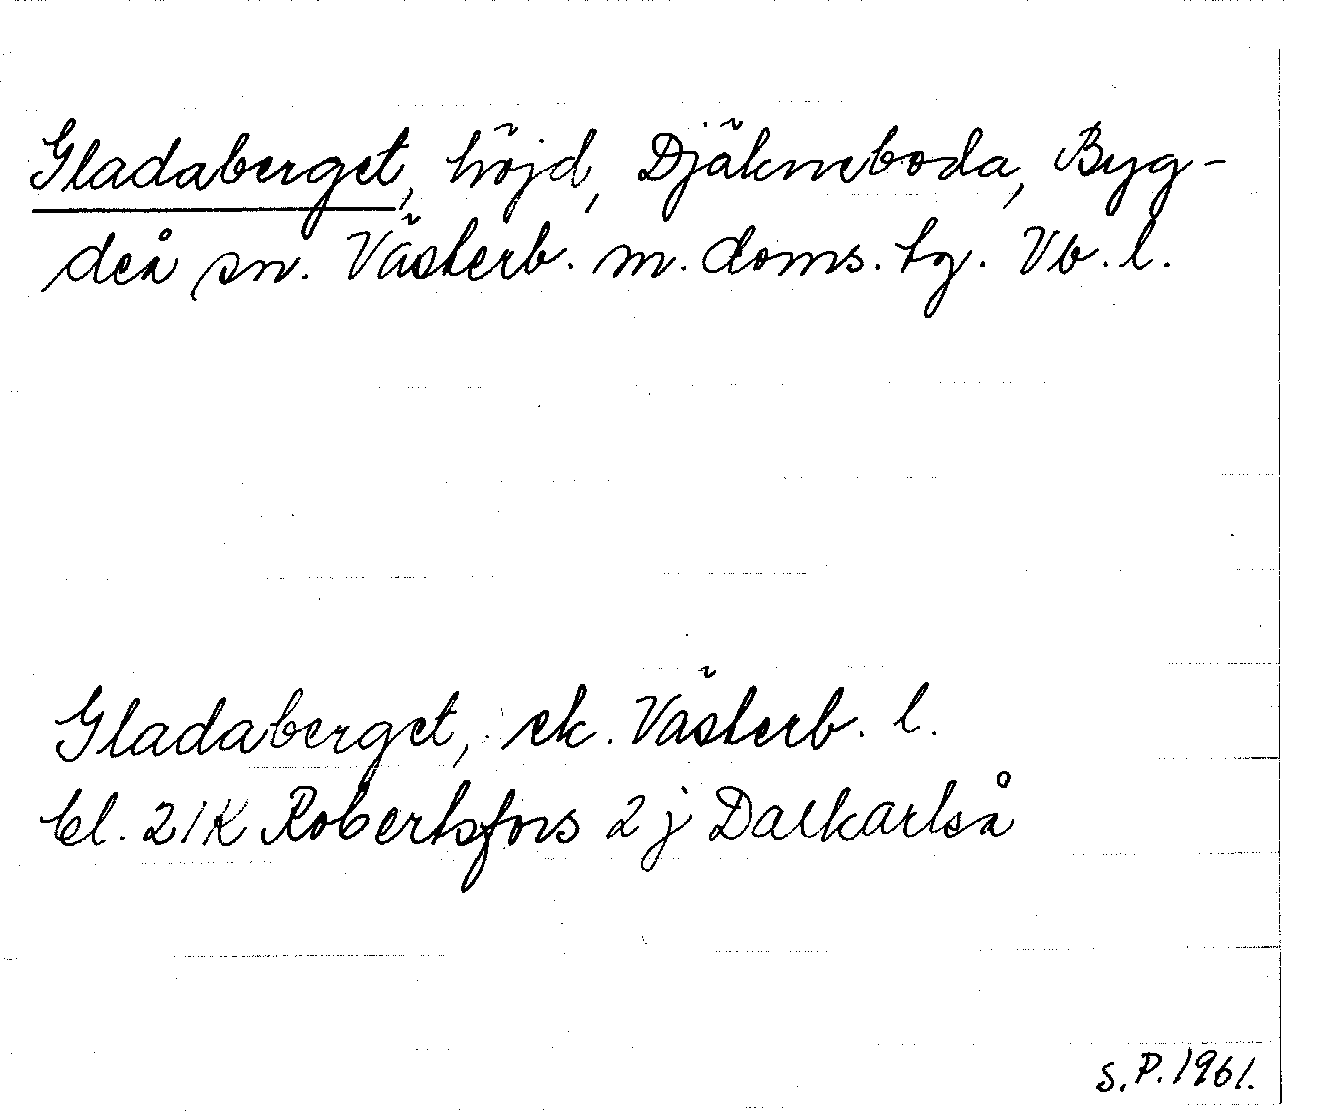 Gladaberget, höjd, Djäkneboda, Byg-
deå sn. Västerb. m. doms. tg. Vb. l.
Gladaberget, ek. Västerb. l.
bl. 21K Robertsfors 2 j Dalkarlså
S.P. 1961.